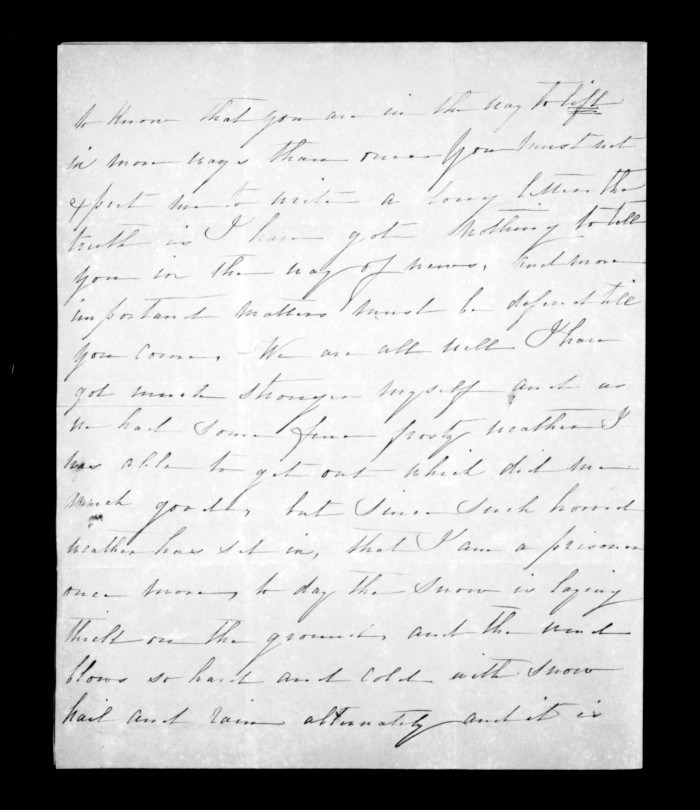 to Know that you are in the way to life
in more ways than one You must not
expect me to write a long letter the
truth is I have got Nothing to tell
you in the way of news, and more
important matters must be defered till
you come, We are all well I have
got much stronger myself and as
we had some fine frosty weather I
was able to get out which did me
much good, but since such horrid
weather has set in, that I am a prisoner
once more, to day the snow is laying
thick on the ground, and the wind
blows so hard and cold with snow
hail and rain alternately and it is